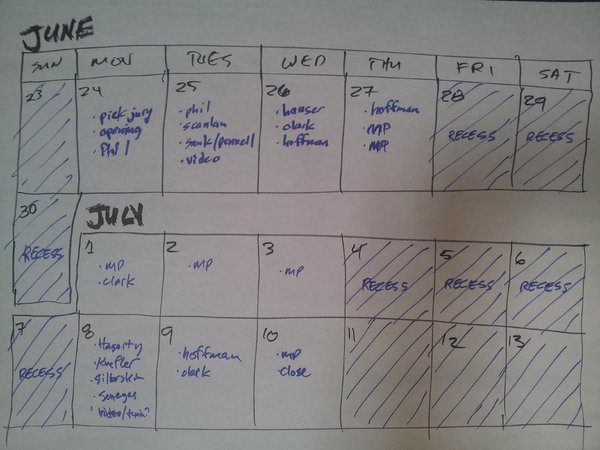 JUNE
SUN MON TUES WED THU FRI SAT
23
24
• pick jury
• opening
• Phil
25
• phil
• scanlan
• video
26
• hauser
• clark
• hoffman
27
• hoffman
• MP
• MP
28
RECESS
29
RECESS
30
RECESS
JULY
1
• MP
• clark
2
• MP
3
• MP
4
RECESS
5
RECESS
6
RECESS
7
RECESS
8
• Hagarty
• Silberstein
9
• hoffman
• clark
10
• MP
• close
11
12
13